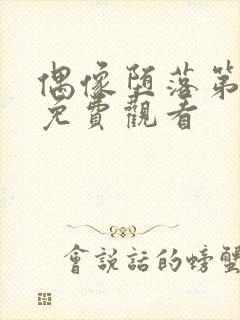 偶像堕落第
免費觀看
會說話的螃蟹